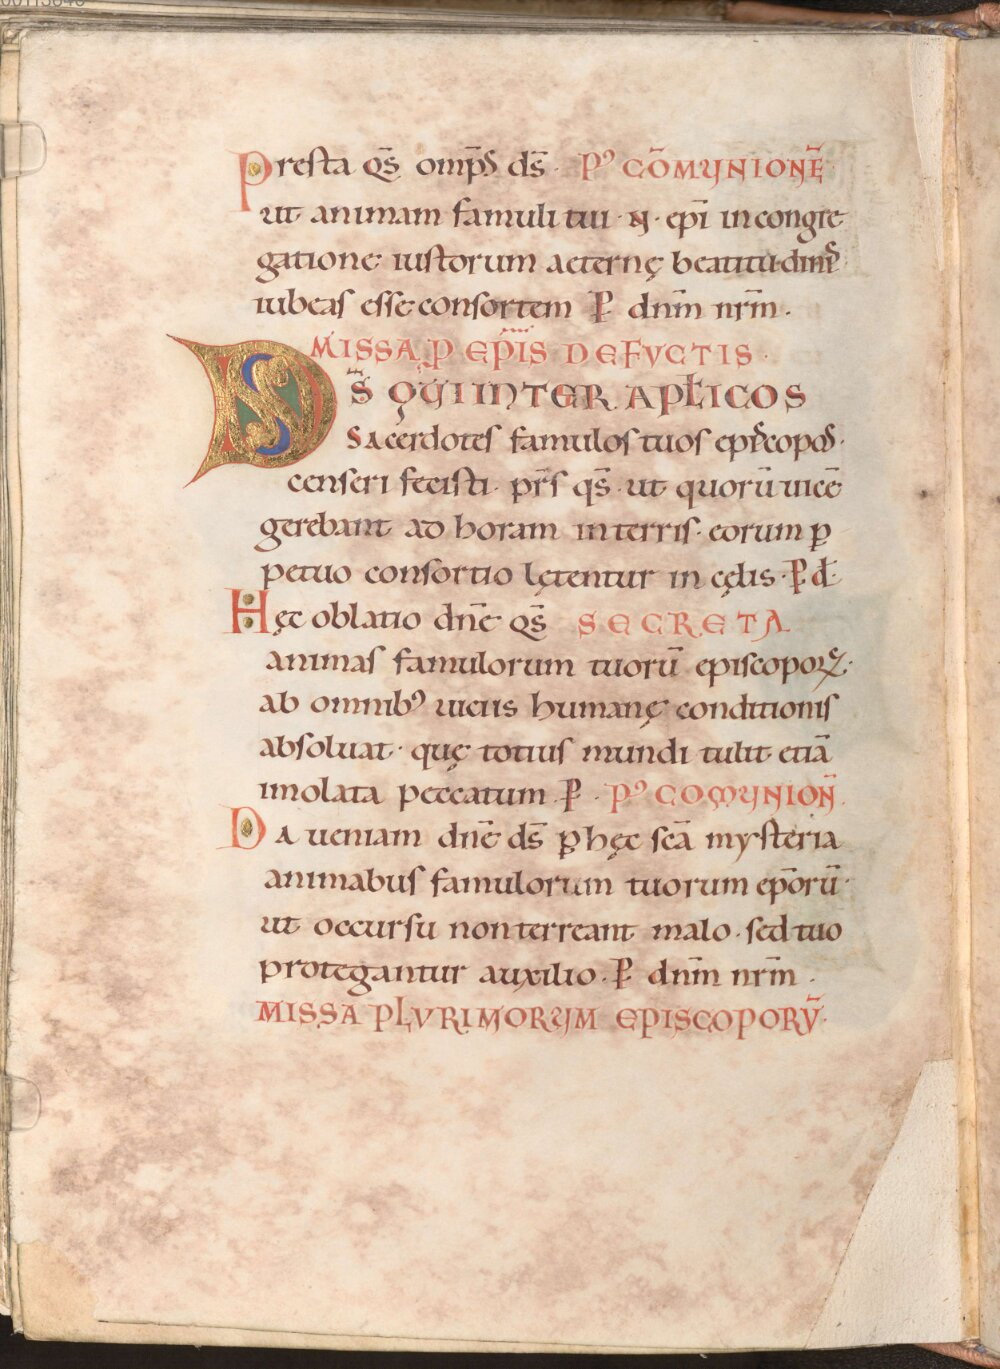 Presta qs̄ omp̄s ds̄ · P⁹ CŌMUNIONĒ
ut animam famuli tui · N · ep̄i in congre
gatione iustorum aeternę beatitudinis
iubeas esse consortem P̄ dn̄m nr̄m ·
MISSA P EP̄IS DEFVCTIS ·
DS̄ QUI INTER APL̄ICOS
Sacerdotes famulos tuos episcopos ·
censeri fecisti · pr̄s qs̄ · ut quorū uicē
gerebant ad horam in terris · eorum ꝑ
petuo consortio lętentur in cęlis · P̄ d ·
Hęc oblatio dn̄e qs̄ SECRETA
animas famulorum tuorū episcoporꝝ ·
ab omnib⁹ uiciis humanę conditionis
absoluat · quę totius mundi tulit etiā
imolata peccatum P̄ · P⁹ COMUNION̄ ·
Da ueniam dn̄e ds̄ ꝑ hęc scā mysteria
animabus famulorum tuorum ep̄orū ·
ut occursu non terreant malo · sed tuo
protegantur auxilio · P̄ dn̄m nr̄m ·
MISSA PLVRIMORUM EPISCOPORV̄ ·